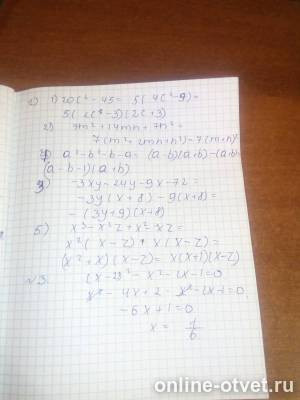 2) 1) 20c² - 45 = 5(4c² - 9) =
5(2c - 3)(2c + 3)
2) 7m² + 14mn + 7n² =
7(m² + 2mn + n²) = 7(m + n)²
a² - b² - b - a = (a - b)(a + b) - (a + b)
(a - b - 1)(a + b)
-3xy - 24y - 9x - 72 =
-3y(x + 8) - 9(x + 8) =
-(3y + 9)(x + 8)
5) x³ - x²z + x² - xz =
x²(x - z) + x(x - z) =
(x² + x)(x - z) = x(x+1)(x-z)
№3.
- x² - 2x - 1 = 0
x² - 4x + 2 - x² - 2x - 1 = 0
-6x + 1 = 0
x = 1/6
online-otvet.ru